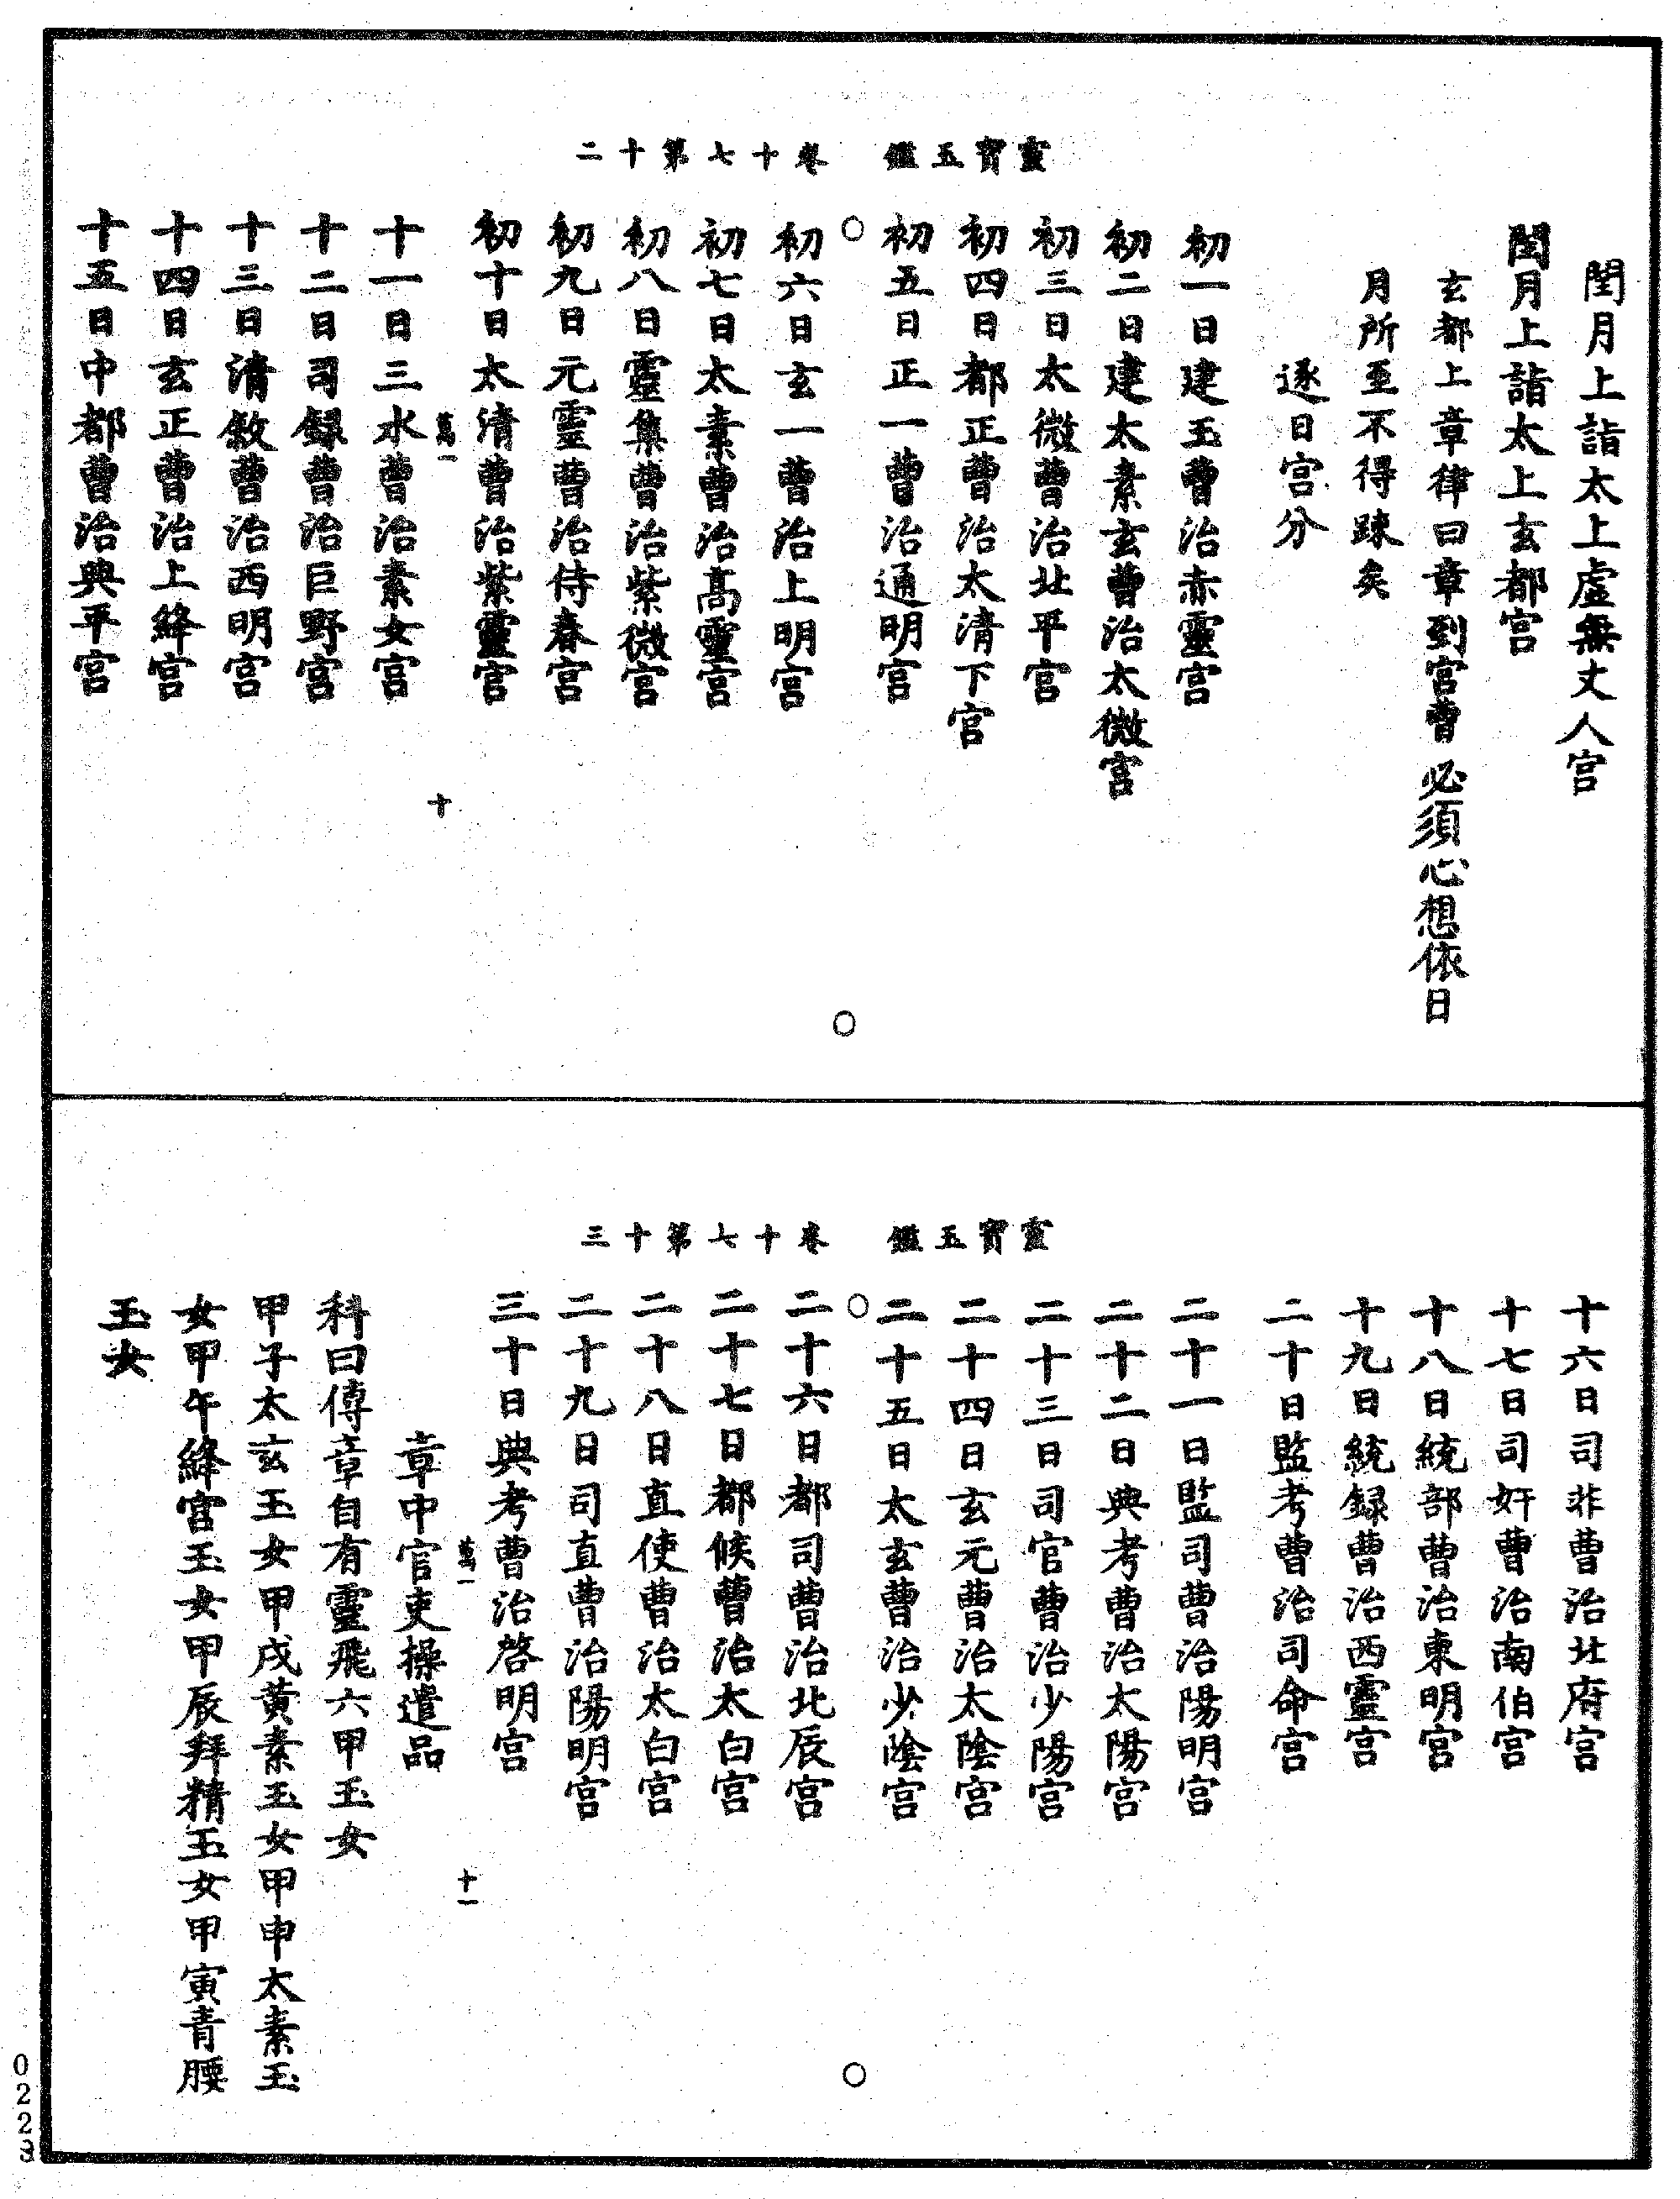 靈寳玉鑑　卷十七第十二
閏月上詣太上虛無丈人宮
閏月上詣太上玄都宮
玄都上章律曰章到宮曹必須心想依日
月所至不得踈矣
逐日宮分
初一日建玉曹治赤靈宮
初二日建太素玄曹治太微宮
初三日太微曹治北平宮
初四日都正曹治太清下宮
初五日正一曹治通明宮
初六日玄一曹治上明宮
初七日太素曹治高靈宮
初八日靈集曹治紫微宮
初九日元靈曹治侍春宮
初十日太清曹治紫靈宮
萬一　十
十一日三水曹治素女宮
十二日司錄曹治巨野宮
十三日清敘曹治西明宮
十四日玄正曹治上絳宮
十五日中都曹治典平宮
靈寳玉鑑　卷十七第十三
十六日司非曹治北府宮
十七日司奸曹治南伯宮
十八日統部曹治東明宮
十九日統錄曹治西靈宮
二十日監考曹治司命宮
二十一日監司曹治陽明宮
二十二日典考曹治太陽宮
二十三日司官曹治少陽宮
二十四日玄元曹治太陰宮
二十五日太玄曹治少陰宮
二十六日都司曹治北辰宮
二十七日都候曹治太白宮
二十八日直使曹治太白宮
二十九日司直曹治陽明宮
三十日典考曹治啓明宮
萬一　十一
章中官吏操遣品
科曰傳章自有靈飛六甲玉女
甲子太玄玉女甲戌黃素玉女甲申太素玉
女甲午絳宮玉女甲辰拜精玉女甲寅青腰
玉女
0223